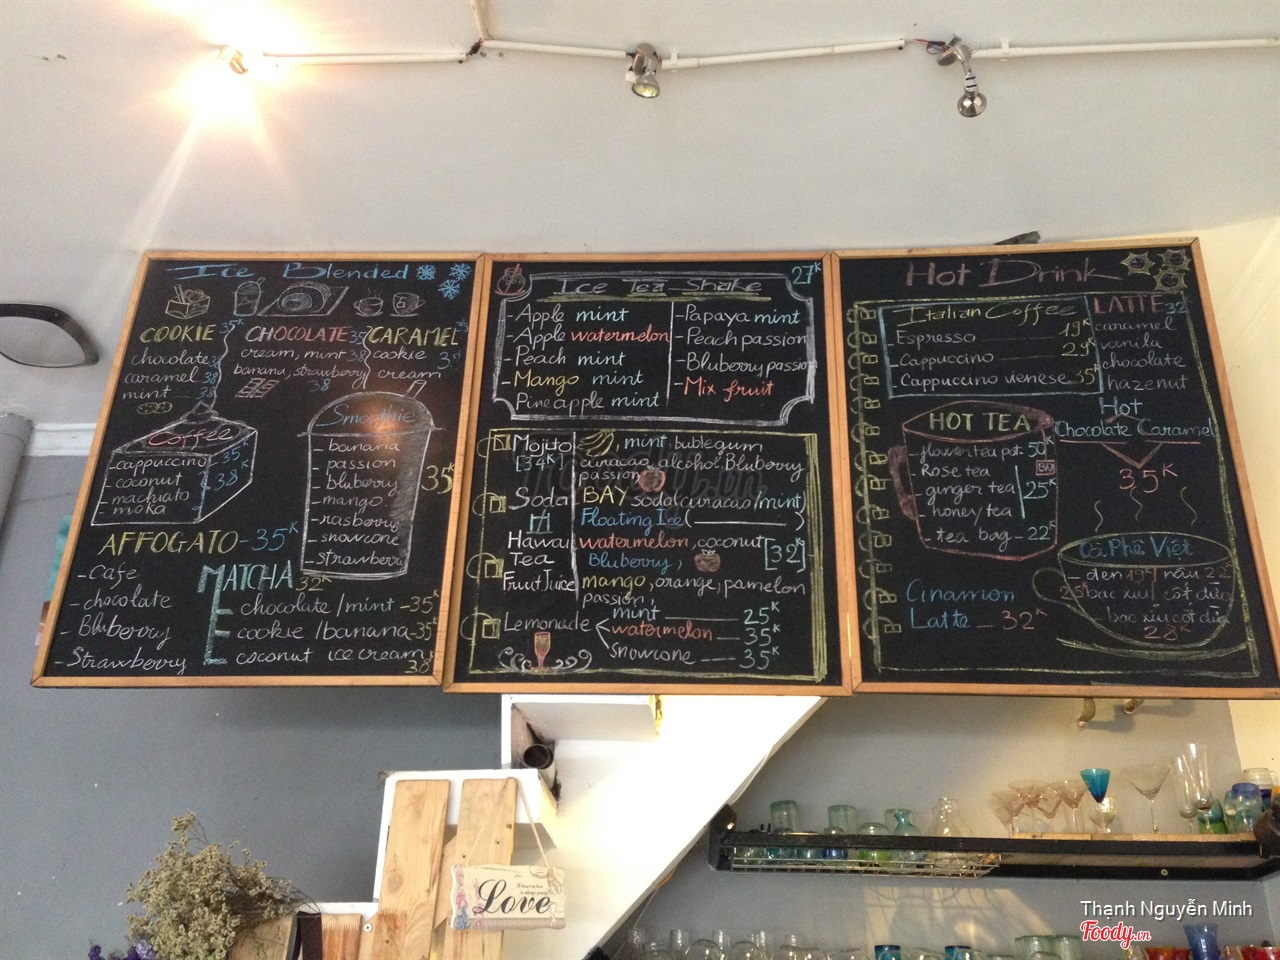 Ice Blended
COOKIE 35K
chocolate 38
caramel 38
mint 38
CHOCOLATE 35
cream, mint 38
banana, strawberry
38
CARAMEL
cookie
cream
Coffee
- cappuccino 35K
- coconut 38K
- machiato
- moka
Smoothie
- banana
- passion
- bluberry
- mango
- rasberry
- snowcone
- strawberry
35K
AFFOGATO - 35K
- Cafe
- chocolate
- Bluberry
- Strawberry
MATCHA 32K
chocolate / mint - 35K
cookie / banana - 35K
coconut ice cream
38
27K
Ice Tea Shake
- Apple mint
- Apple watermelon
- Peach mint
- Mango mint
- Pineapple mint
- Papaya mint
- Peach passion
- Bluberry passion
- Mix fruit
Mojito [34K]
, mint, bublegum
curacao, alcohol, Bluberry
passion
Soda
BAY soda(curacao/mint)
Floating Ice ( )
Hawai Tea
watermelon, coconut [32K]
Bluberry,
Fruut Juice
mango, orange, pamelon
passion,
Lemonade
mint 25K
watermelon 35K
Snowcone 35K
Hot Drink
Italian Coffee
Espresso 19K
Cappuccino 29K
Cappuccino vienese 35K
LATTE 32K
caramel
vanila
chocolate
hazenut
Hot
Chocolate Caramel
35K
HOT TEA
- flower tea pot - 50K
- Rose tea
- ginger tea 25K
- honey tea
- tea bag - 22K
Cinamon
Latte - 32K
Cà Phê Việt
- đen 19K nâu 22K
bạc xỉu cốt dừa
28K
Love
Thạnh Nguyễn Minh
Foody.vn